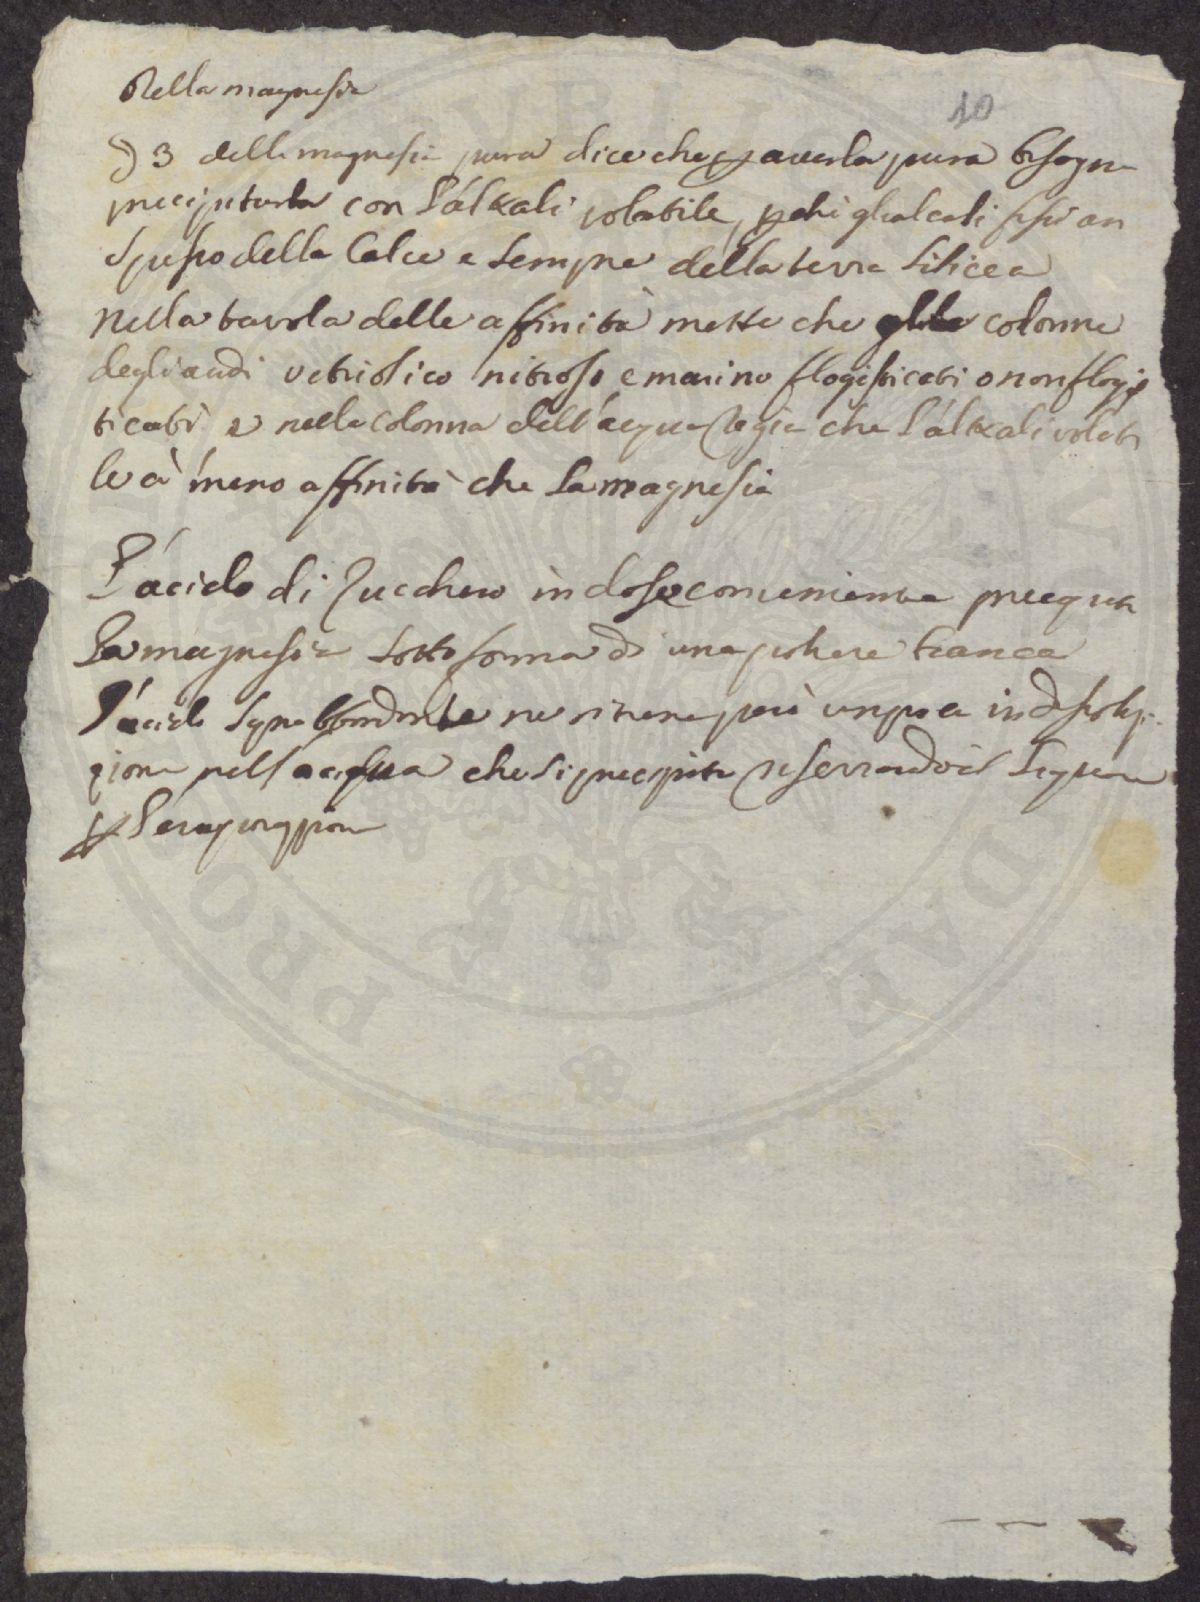 Della magnesia
10
§ 3 della magnesia pura dice che p averla pura bisogna
precipitarla con l'alkali volatile, pchi gli alcali fissi an
spesso della calce e sempre della terra silicea
Nella tavola delle affinità mette che colonne
degli acidi vetriolico nitroso e marino flogisticati o non flogis
ticati e nella colonna dell'acqua regia che l'alkali volati
le à meno affinità che la magnesia
L'acido di Zucchero in dose conveniente precipita
la magnesia sotto forma di una polvere bianca
L'acido ne ritiene però un poca in dissolu
zione nell'acqua che si precipita
p l'evaporazzione